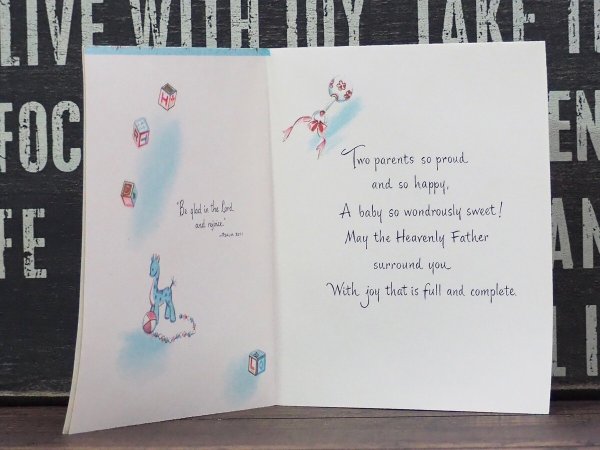 LIVE WITH JOY TAKE TI
FOC
EN
FE
AN
LI
H
"Be glad in the Lord
and rejoice."
—PSALM 32:11
L
Two parents so proud
and so happy,
A baby so wondrously sweet!
May the Heavenly Father
surround you
With joy that is full and complete.